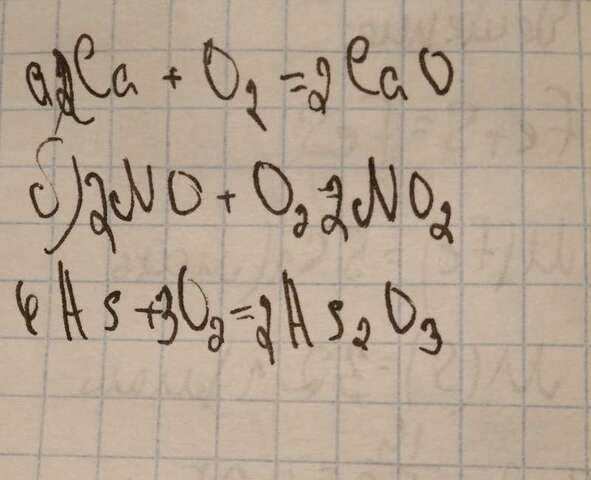 а) 2Ca + O₂ = 2CaO
б) 2NO + O₂ 2NO₂
4As + 3O₂ = 2As₂O₃